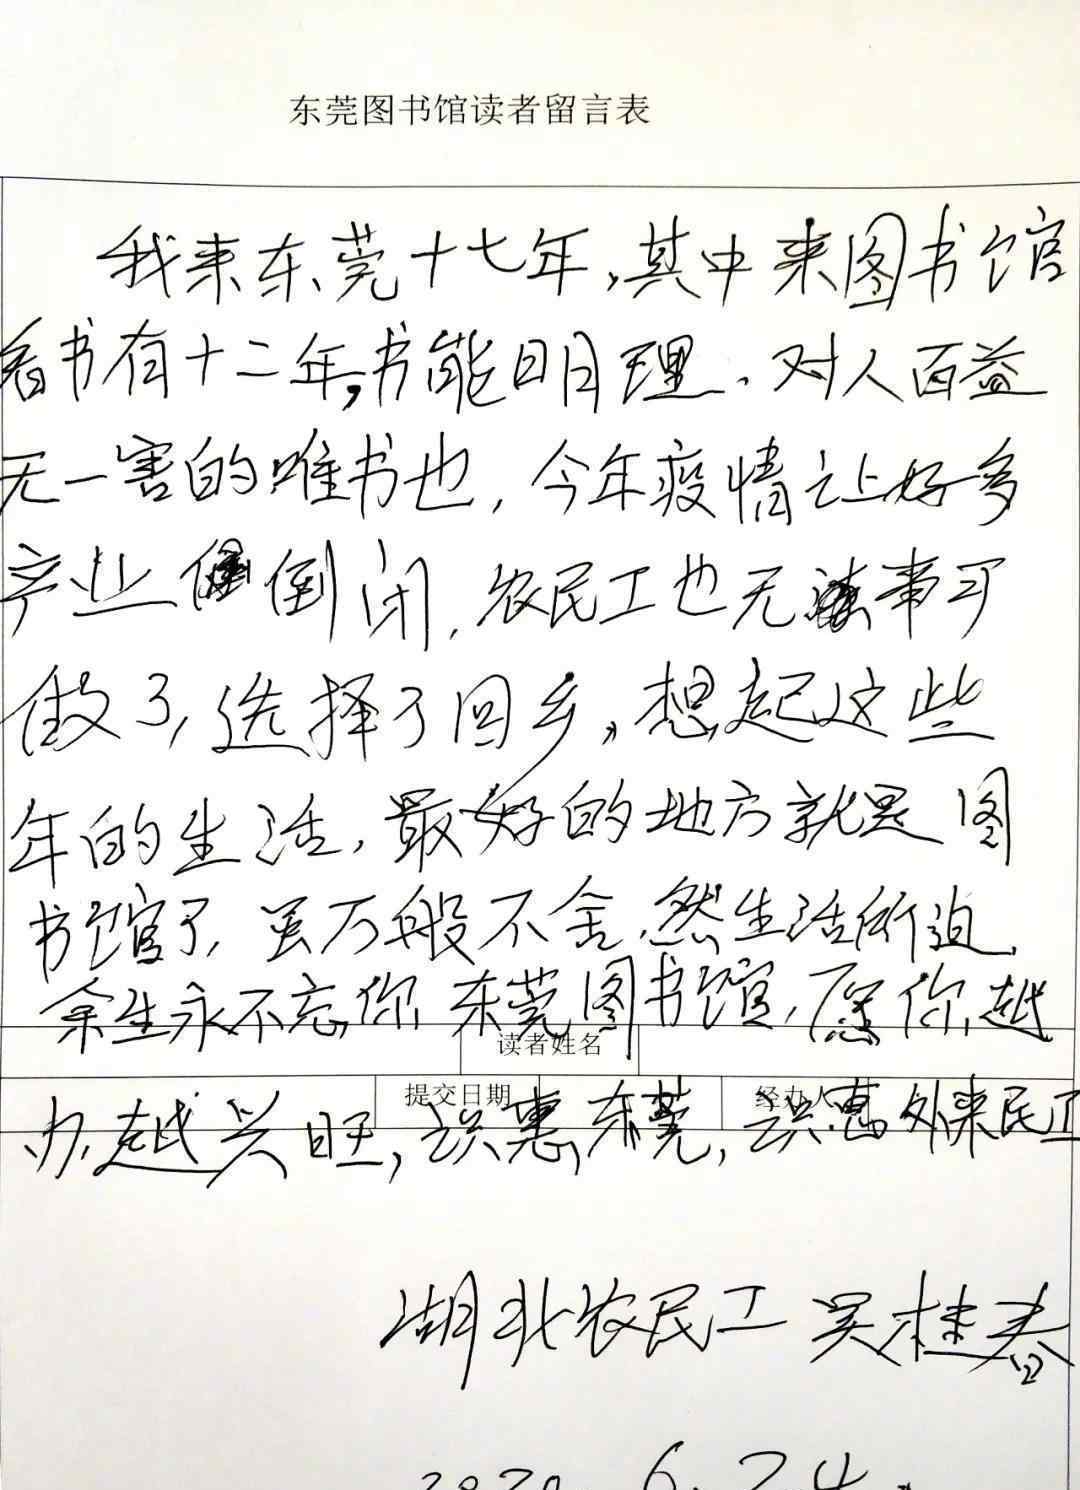 东莞图书馆读者留言表
我来东莞十七年，其中来图书馆
看书有十二年，书能明理，对人百益
无一害的唯书也，今年疫情让好多
产业倒闭，农民工也无事可
做了，选择了回乡。想起这些
年的生活，最好的地方就是图
书馆了，虽万般不舍，然生活所迫，
余生永不忘你东莞图书馆，愿你越
读者姓名
提交日期 经办人
办越兴旺，识惠东莞，识惠外来民工
湖北农民工 吴桂春
2020. 6. 24.